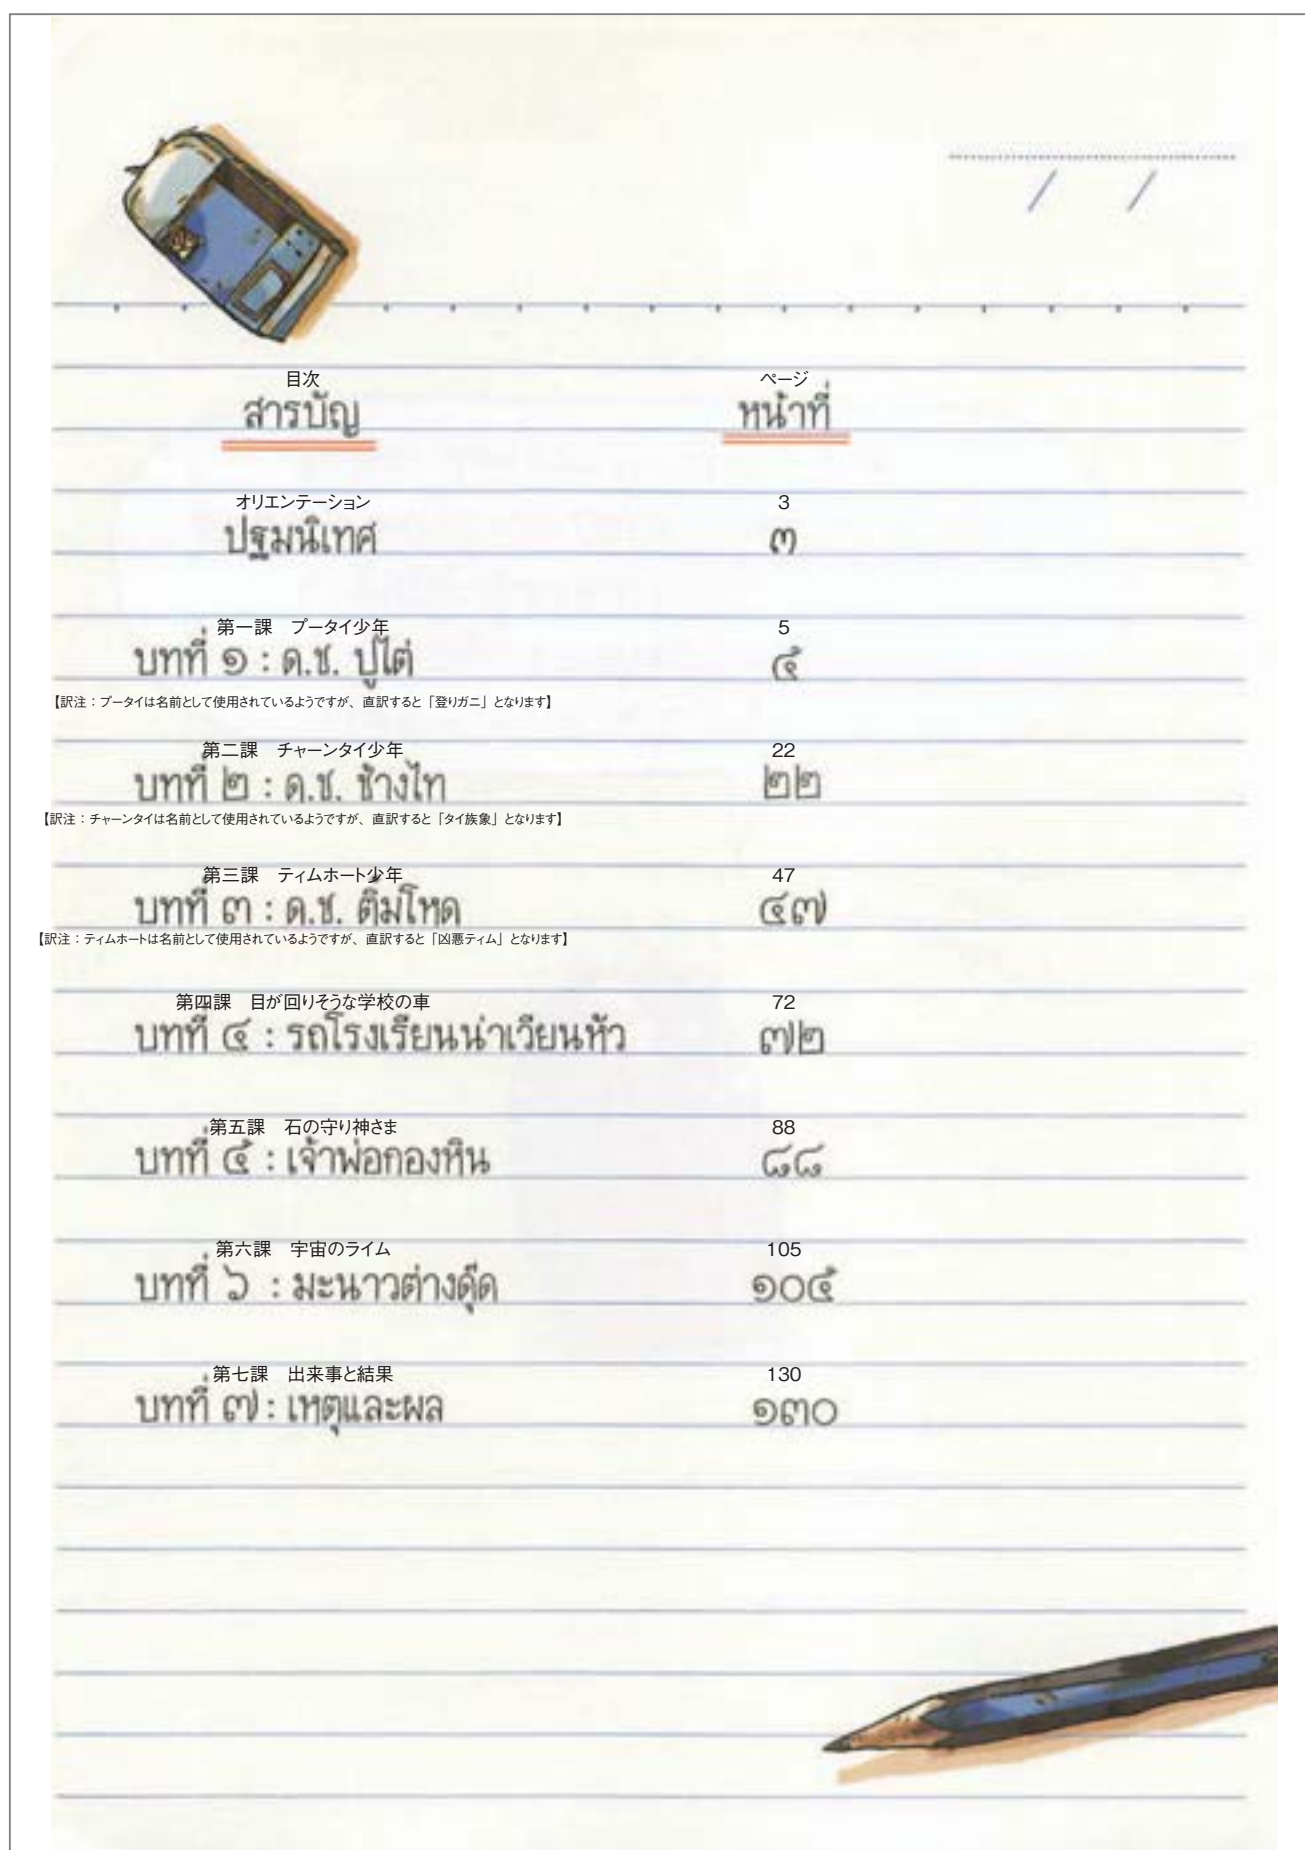 目次 ページ
สารบัญ หน้าที่
オリエンテーション 3
ปฐมนิเทศ ๓
第一課　プータイ少年 5
บทที่ ๑ : ด.ช. ปูไต่ ๕
【訳注：プータイは名前として使用されているようですが、直訳すると「登りガニ」となります】
第二課　チャーンタイ少年 22
บทที่ ๒ : ด.ช. ช้างไท ๒๒
【訳注：チャーンタイは名前として使用されているようですが、直訳すると「タイ族象」となります】
第三課　ティムホート少年 47
บทที่ ๓ : ด.ช. ติ๋มโหด ๔๗
【訳注：ティムホートは名前として使用されているようですが、直訳すると「凶悪ティム」となります】
第四課　目が回りそうな学校の車 72
บทที่ ๔ : รถโรงเรียนน่าเวียนหัว ๗๒
第五課　石の守り神さま 88
บทที่ ๕ : เจ้าพ่อกองหิน ๘๘
第六課　宇宙のライム 105
บทที่ ๖ : มะนาวต่างดุ๊ด ๑๐๕
第七課　出来事と結果 130
บทที่ ๗ : เหตุและผล ๑๓๐